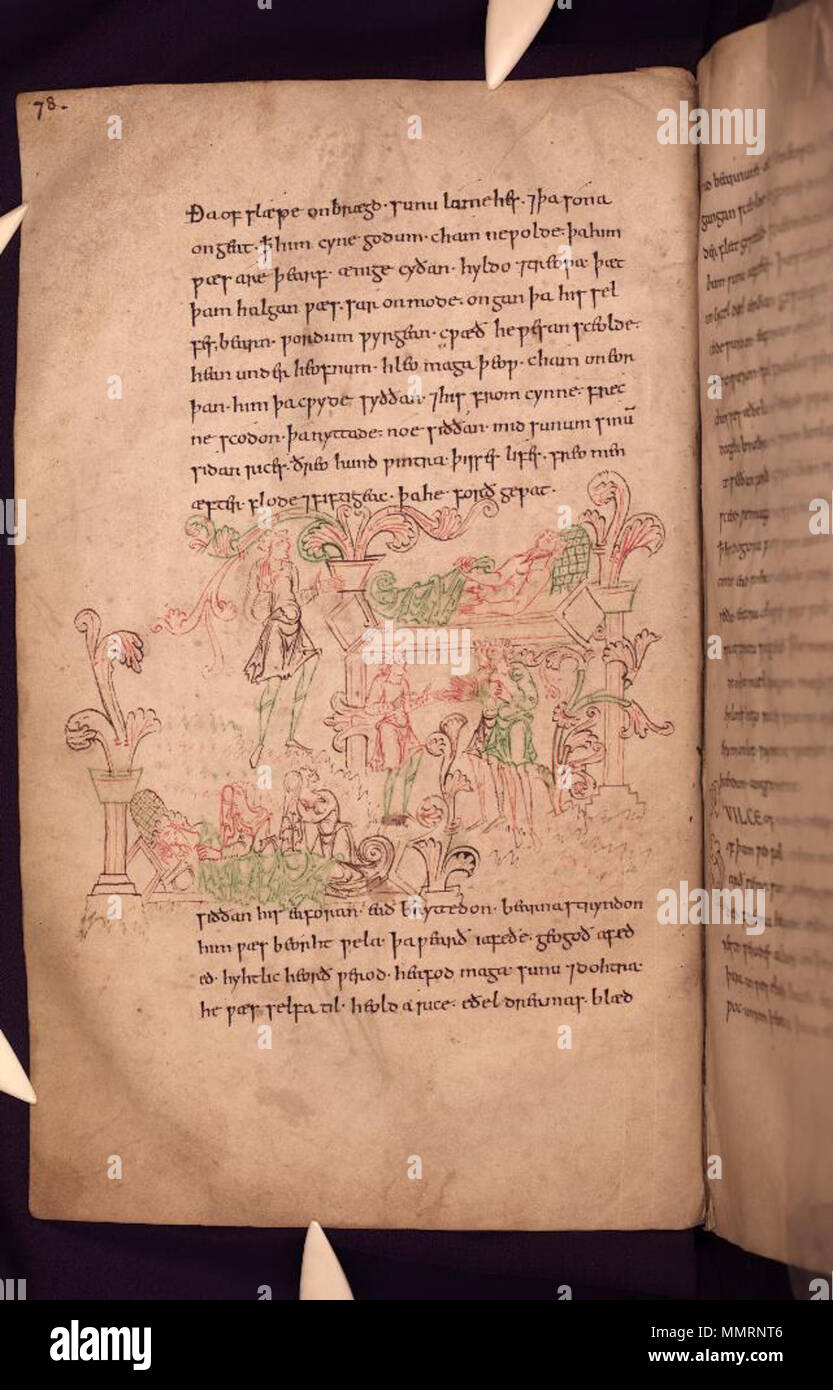 78.
Ða of slæpe onbrægd · sunu lamehes · ⁊ þa sona
ongeat · ꝥ him cyne godum · cham ne ƿolde · þa him
ƿæs are þearf · ænige cyðan · hyldo ⁊ treoƿa · þæt
þam halgan ƿæs · sar on mode · ongan þa his sel
fes bearn · ƿordum ƿyrgean · cƿæð he ƿesan sceolde ·
hean under heofnum · hleo maga þeoƿ · cham on eor
þan · him þa cƿyde syððan · ⁊ his from cynne · frec
ne scodon · þa nyttade · noe siððan · mid sunum sinū
sidan rices · ðreo hund ƿintra · þisses lifes · freo men
æfter flode ⁊ fiftigeac · þa he forð geƿat ·
siððan his eaforan · ead bryttedon · bearna stryndon
him ƿæs beorht ƿela · þa ƿearð iafeðe · geogoð afed
ed · hyhtlic heorð ƿerod · heafod maga · sunu ⁊ dohtra
he ƿæs selfa til · heold a rice · eðel dreamas · blæd
alamy
Image ID: MMRNT6
www.alamy.com